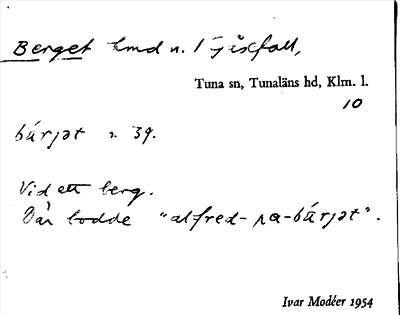 Berget lmd n. 1 Gisfall,
Tuna sn, Tunaläns hd, Klm. l.
10
bárjət n. 39.
Vid ett berg.
Där bodde "alfred-pa-bárjət".
Ivar Modéer 1954